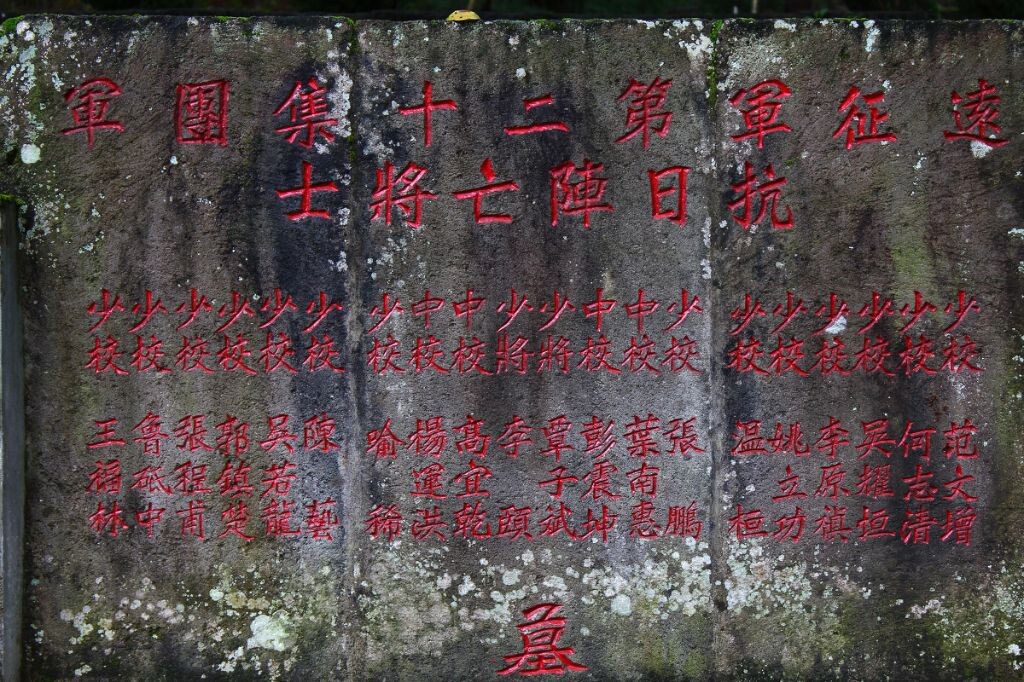 遠征軍第二十集團軍
抗日陣亡將士
少校 范文增
少校 何志
少校 吳耀垣
少校 李原
少校 姚立功
少校 温桓
少校 張鵬
中校 葉南惠
中校 彭震坤
少將 覃子斌
少將 李頤
中校 高宜乾
中校 楊運洪
少校 喻稀
少校 陳藝
少校 吳若龍
少校 郭鎮楚
少校 張程甫
少校 魯砥中
少校 王福林
墓